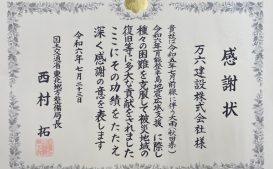 感謝状
万六建設株式会社様
貴社は令和五年七月前線に伴う大雨(秋田県)
令和六年能登半島地震広域支援に際し
種々の困難を克服して被災地域の
復旧等に多大な貢献をされました
ここにその功績をたたえ
深く感謝の意を表します
令和六年七月二十三日
国土交通省東北地方整備局長
西村 拓